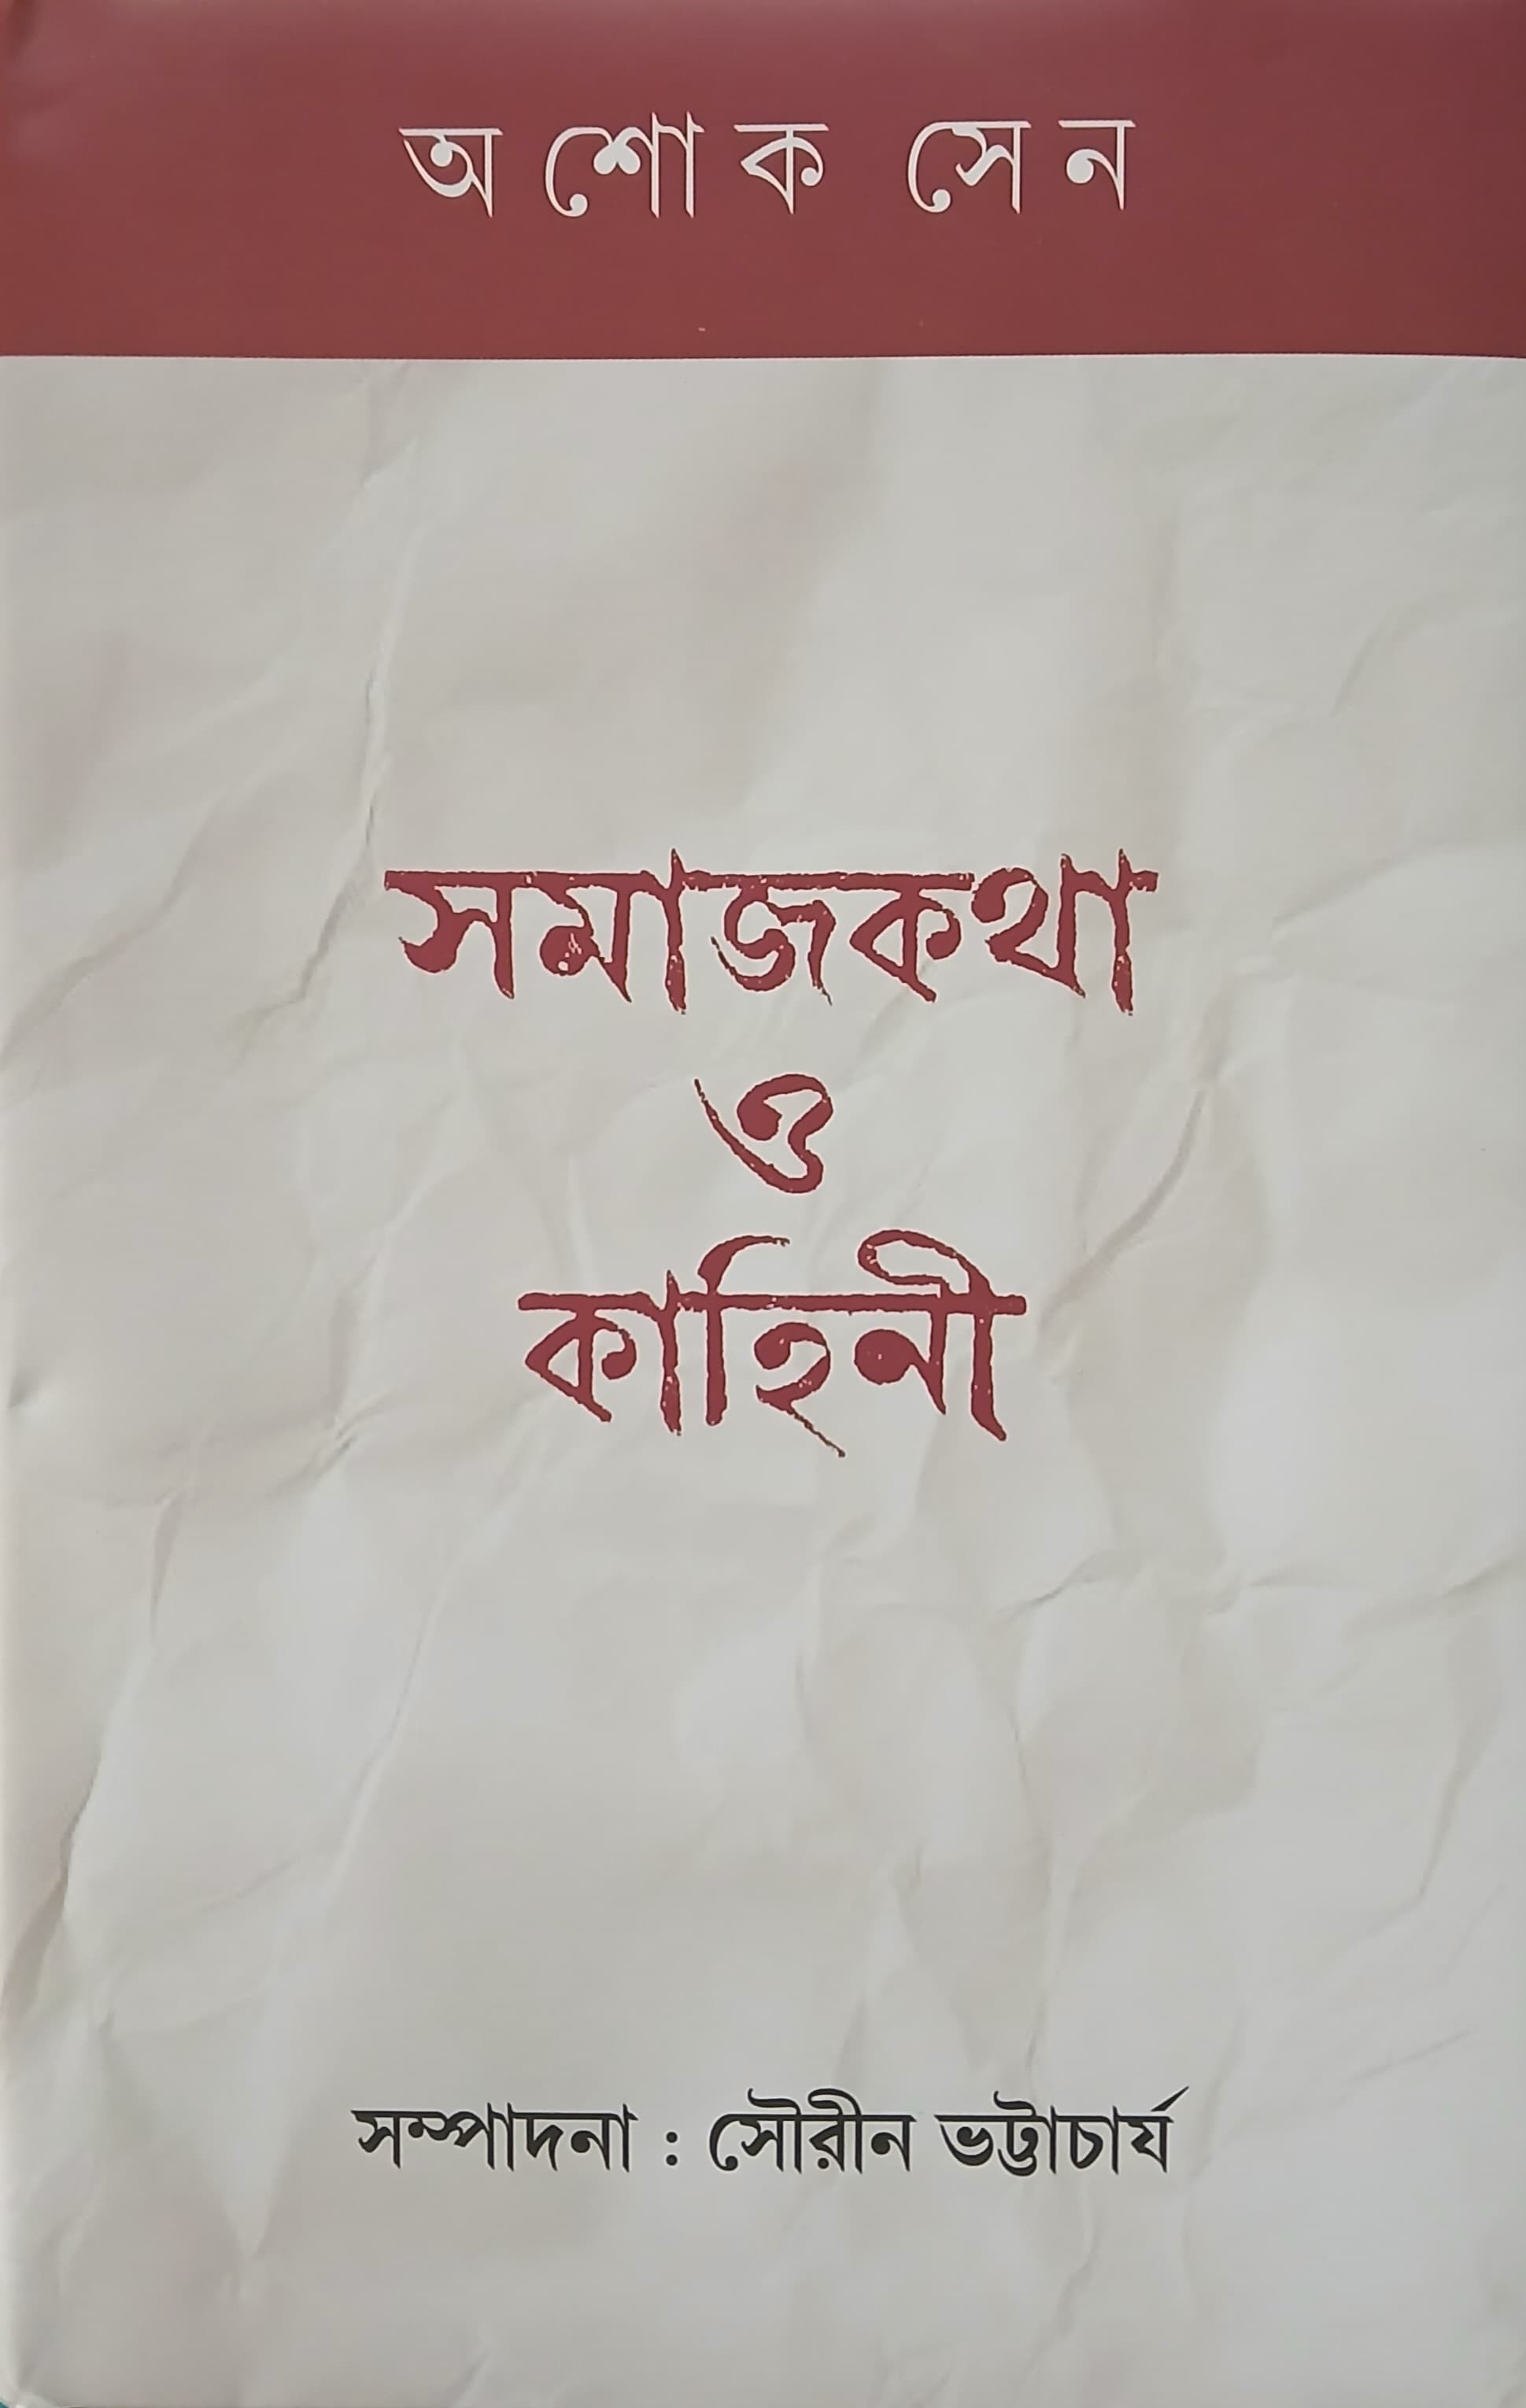 অশোক সেন
সমাজকথা
ও
কাহিনী
সম্পাদনা : সৌরীন ভট্টাচার্য